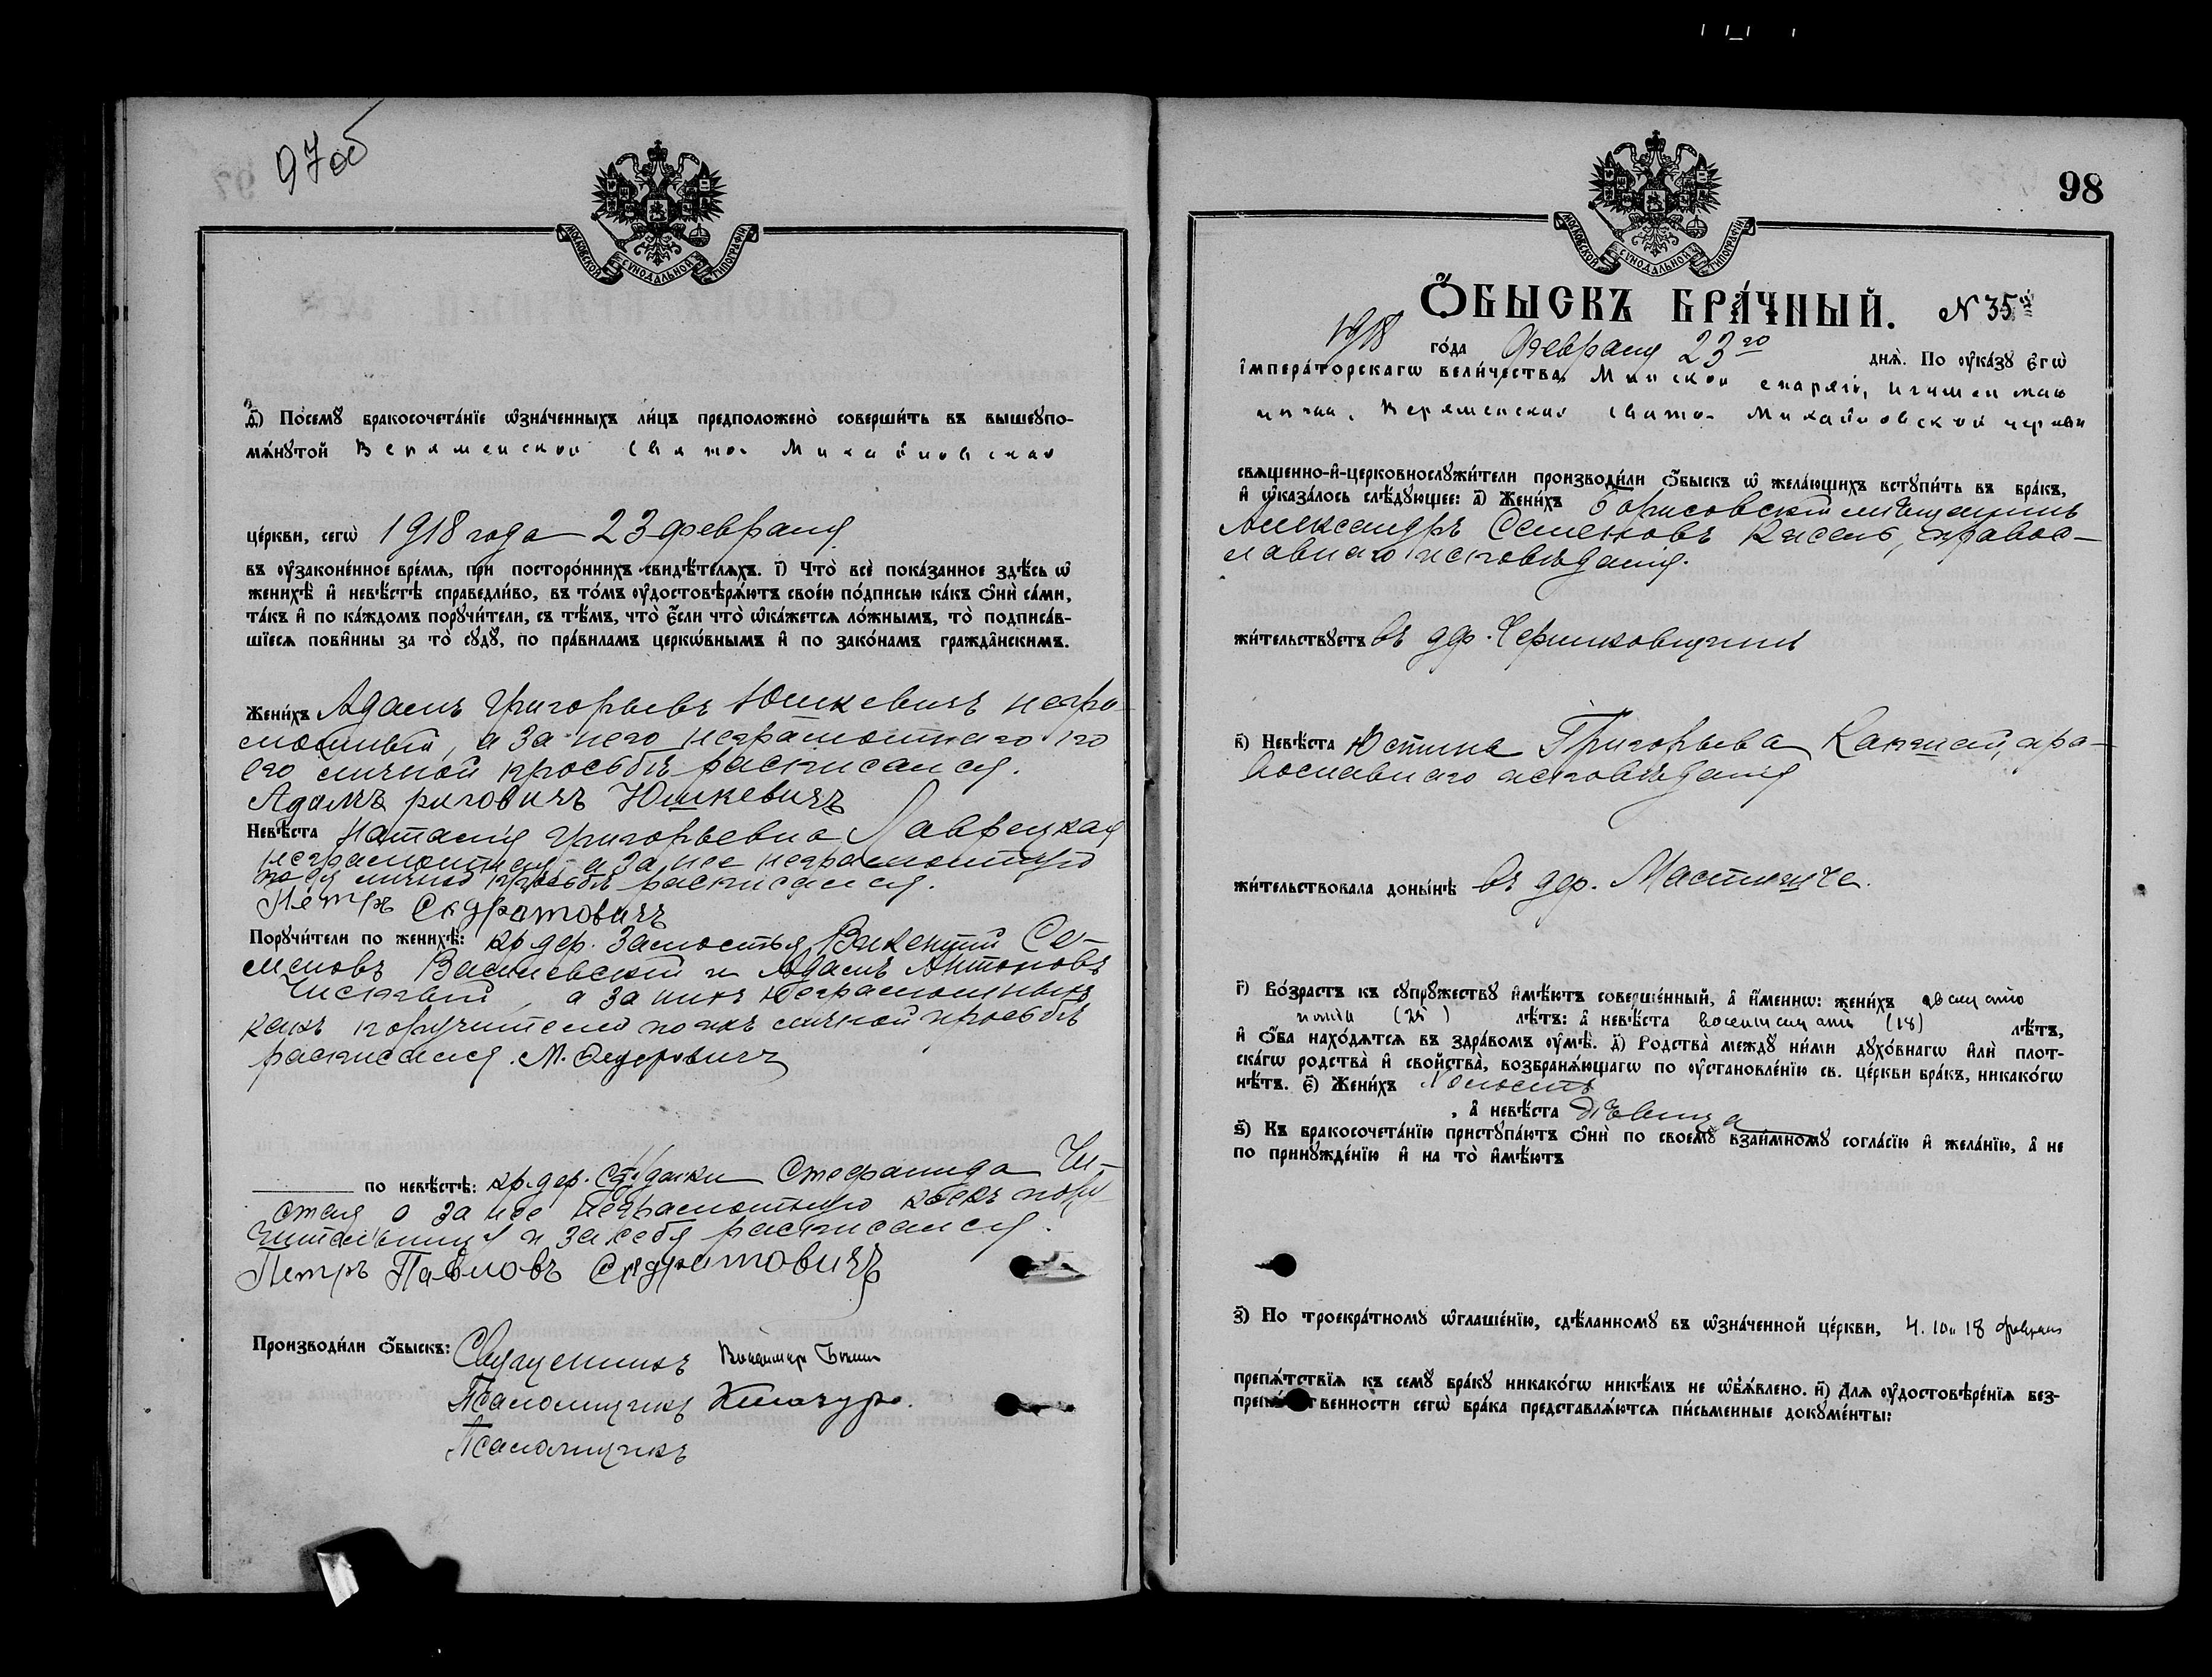 97об
МОСКОВСКОЙ СѴНОДАЛЬНОЙ ТИПОГРАФІИ
Посемꙋ̀ бракосочета́нїе ѡ҆зна́ченныхъ ли́цъ предположено̀ соверши́ть въ вышеꙋпо-
мѧ́нꙋтой Веряменской Свято- Михайловской
це́ркви, сегѡ̀ 1918 года 23 февраля
въ ᲂу҆зако́ненное вре́мѧ, при посторо́ннихъ свидѣ́телѧхъ. і҃) Что̀ всѐ пока́занное здѣ́сь ѡ҆
женихѣ̀ и҆ невѣ́стѣ справедли́во, въ то́мъ ᲂу҆достовѣрѧ́ютъ свое́ю по́дписью ка́къ ѻ҆нѝ са́ми,
та́къ и҆ по ка́ждомъ порꙋчи́тели, съ тѣ́мъ, что̀ є҆́сли что̀ ѡ҆ка́жетсѧ ло́жнымъ, то̀ подписа́в-
шїесѧ пови́нны за то̀ сꙋдꙋ̀, по пра́виламъ церкѡ́внымъ и҆ по зако́намъ гражда́нскимъ.
Жени́хъ Адамъ Григорьевъ Юшкевичъ негра-
мотный, а за него неграмотнаго по
его личной просьбѣ расписался.
Адамъ риговичъ Юшкевичъ
Невѣ́ста Наталія Григорьевна Лаврецкая
неграмотная, а за нее неграмотную
по ея личной просьбѣ расписался.
Петръ
Порꙋчи́тели по женихѣ̀: кр. дер. Замостья Викентій Се-
меновъ Василевскій и Адамъ Антоновъ
Чистый, а за нихъ неграмотныхъ
какъ поручителей по ихъ личной просьбѣ
расписался. М. Федоровичъ
по невѣ́стѣ: кр. дер. Стефанида Чи-
стая а за нее неграмотную какъ пору-
чительницу и за себя расписался.
Петръ Павловъ
Производи́ли ѻ҆́быскъ: Священникъ Владимиръ
Псаломщикъ
Псаломщикъ
98
МОСКОВСКОЙ СѴНОДАЛЬНОЙ ТИПОГРАФІИ
Ѻ҆́БЫСКЪ БРА́ЧНЫЙ. N 35й
1918 го́да Февраля 23го днѧ̀. По ᲂу҆ка́зꙋ є҆гѡ̀
і҆мпера́торскагѡ вели́чества, Минской епархіи, Игуменскаго
Веряменской Свято- Михайловской церкви
свѧще́нно-и҆-церковнослꙋжи́тели производи́ли ѻ҆́быскъ ѡ҆ жела́ющихъ встꙋпи́ть въ бра́къ,
и҆ ѡ҆каза́лось слѣ́дꙋющее: а҃) Жени́хъ борисовскій мѣщанинъ
Александръ Семеновъ Кисель, правос-
лавнаго исповѣданія.
жи́тельствꙋетъ въ дер.
в҃) Невѣ́ста Юстина Григорьева пра-
вославнаго исповѣданія
жи́тельствовала доны́нѣ въ дер.
г҃) Во́зрастъ къ сꙋпрꙋ́жествꙋ и҆мѣ́ютъ соверше́нный, а҆ и҆́меннѡ: жени́хъ двадцати
пяти (25) лѣ́тъ: а҆ невѣ́ста восемнадцати (18) лѣ́тъ,
и҆ ѻ҆́ба нахо́дѧтсѧ въ здра́вомъ ᲂу҆мѣ̀. д҃) Родства̀ междꙋ̀ ни́ми дꙋхо́внагѡ и҆лѝ пло́т-
скагѡ родства̀ и҆ сво́йства, возбранѧ́ющагѡ по ᲂу҆становле́нїю св. це́ркви бра́къ, никако́гѡ
нѣ́тъ. є҃) Жени́хъ Холостъ
, а҆ невѣ́ста дѣвица
ѕ҃) Къ бракосочета́нїю пристꙋпа́ютъ ѻ҆нѝ по своемꙋ̀ взаи́мномꙋ согла́сїю и҆ жела́нїю, а҆ не
по принꙋжде́нїю и҆ на то̀ и҆мѣ́ютъ
з҃) По троекра́тномꙋ ѡ҆глаше́нїю, сдѣ́ланномꙋ въ ѡ҆зна́ченной це́ркви, 4. 10 и 18 февраля
препѧ́тствїѧ къ семꙋ̀ бра́кꙋ никако́гѡ никѣ́мъ не ѡ҆б̾ѧ́влено. и҃) Для ᲂу҆достовѣре́нїѧ без-
препятственности сегѡ̀ бра́ка представлѧ́ютсѧ пи́сьменные докꙋме́нты: